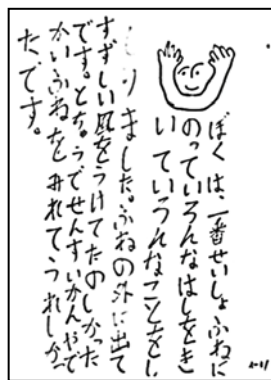 ぼくは、一番せいしょふねに
のっていろんなはしをき
いていろんなことをし
りました。ふねの外に出て
すずしい風をうけてたのしかった
です。とちゅうでせんすいかんやで
かいふねをみれてうれしかっ
たです。